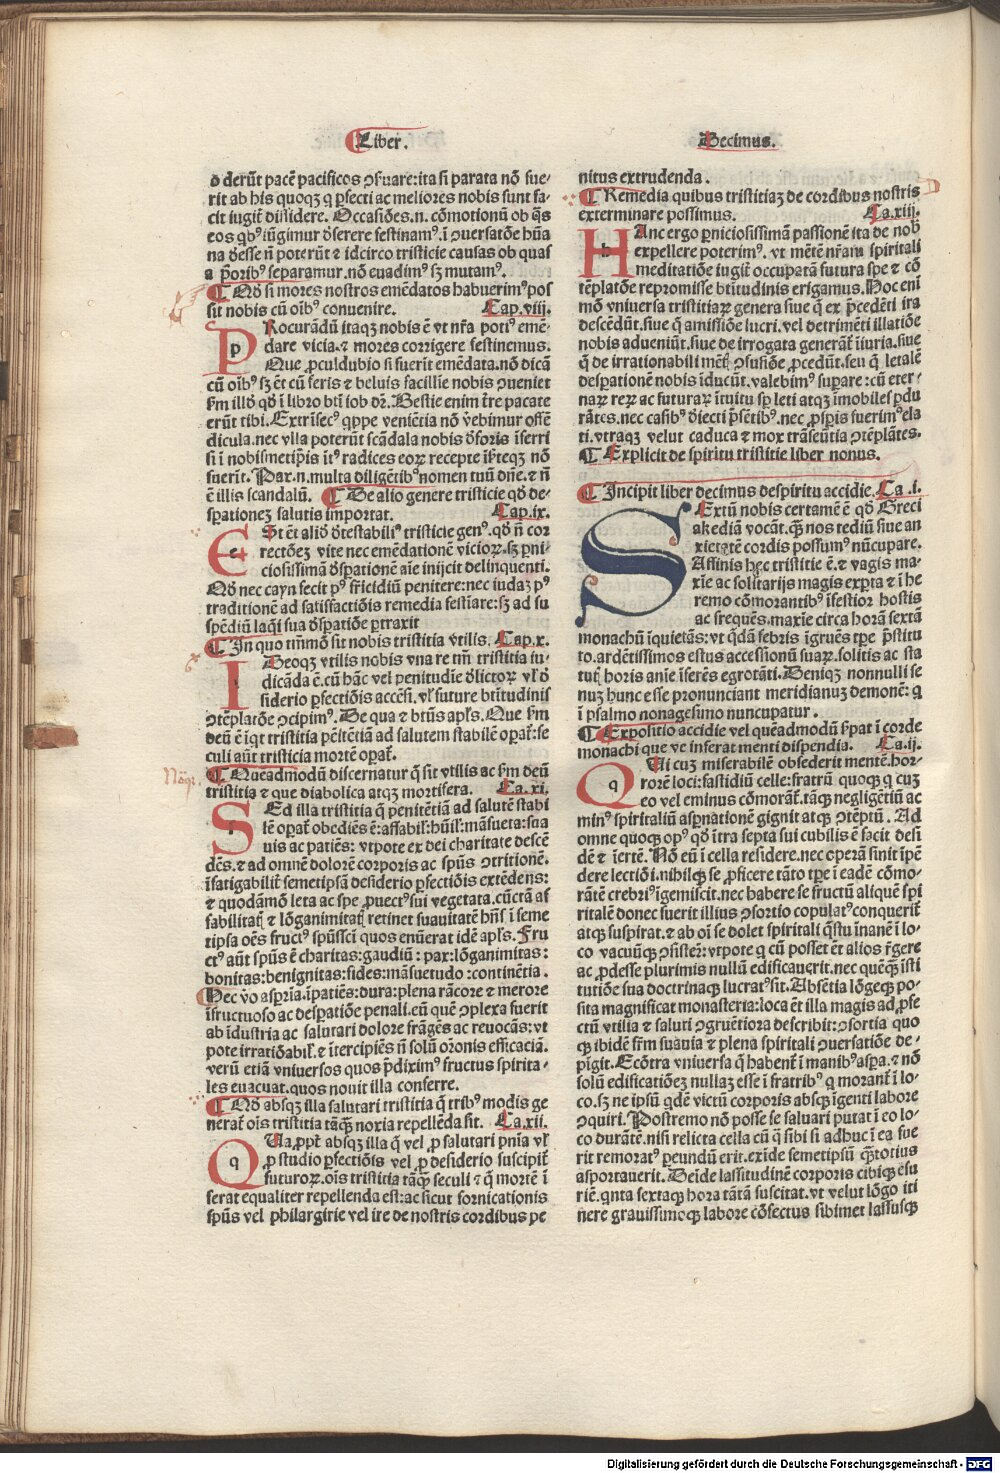 Liber.
Decimus.
ꝺ derūt pacē pacificos ꝯẜuare: ita si parata nō fue-
rit ab his quoqꝫ q̄ ꝑfecti ac meliores nobis sunt fa-
cit iugiť dissidere. Occasiōes.n. cōmotionū ob q̄s
eos qbꝰ iūgimur deserere festinamꝰ. ī ꝯuersatōe hūa
na deesse ñ poterūt ⁊ idcirco tristicie causas ob quas
a p̄oribꝰ separamur. nō euadimꝰ sꝫ mutamꝰ.
¶ Qd̄ si mores nostros emēdatos habuerimꝰ pos
sit nobis cū oībꝰ conuenire. Cap.viij.
PRocurādū itaqꝫ nobis ē vt nr̄a potiꝰ emē-
dare vicia. ⁊ mores corrigere festinemus.
Que ꝓculdubio si fuerīt emēdata. nō dicā
cū oībꝰ sꝫ ēt cū feris ⁊ beluis facillie nobis ꝯueniet
ẜm illd̄ qd̄ ī libro bt̄i iob dr̄. Bestie enim tr̄re pacate
erūt tibi. Extrīsecꝰ q̄ppe veniētia nō v̄ebimur offē
dicula. nec vlla poterūt scādala nobis d̄foris īferri
si ī nobismetip̄is ītꝰ radices eoꝝ recepte īẜteqꝫ nō
fuerīt. Pax.n. multa diligētibꝰ nomen tuū dn̄e. ⁊ ñ
ē illis scandalū. ¶ De alio genere tristicie qd̄ de-
sꝑationeꝫ salutis importat. Cap.ix.
ESt ēt aliō d̄testabiliꝰ tristicie genꝰ. qd̄ ñ cor
rectōeꝫ vite nec emēdationē vicioꝝ. sꝫ ꝑni-
ciosissimā d̄sꝑationē aīe inijcit delinquenti.
Qd̄ nec cayn fecit pꝰ fr̄icidiū penitere: nec iudaꝫ pꝰ
traditionē ad satisfactiōis remedia festīare: sꝫ ad su
spēdiū laq̄i sua d̄sꝑatiōe ꝑtraxit
¶ In quo tm̄mō sit nobis tristitia vtilis. Cap.x.
IDeoqꝫ vtilis nobis vna re tm̄ tristitia iu-
dicāda ē. cū hāc vel penitudīe d̄lictoꝝ vl̄ d̄
siderio ꝑfectiōis accēsi. vl̄ future btītudinis
ꝯtēplatōe ꝯcipimꝰ. De qua ⁊ bt̄us apl̄s. Que ẜm
deū ē īqt tristitia pēitētiā ad salutem stabilē oꝑat̄: se
culi aūt tristicia mortē oꝑat̄.
¶ Queadmodū discernatur q̄ sit vtilis ac ẜm deū
tristitia ⁊ que diabolica atqꝫ mortifera. Ca.xi.
SEd illa tristitia q̄ penitētiā ad salutē stabi
lē oꝑat̄ obediēs ē: affabil̄: hūil̄: māsueta: sua
uis ac patiēs: vtpote ex dei charitate descē
dēs. ⁊ ad omnē dolorē corporis ac spūs ꝯtritionē.
īfatigabilit̄ semetipsā desiderio ꝑfectiōis extēdens:
⁊ quodāmō leta ac spe ꝓuectꝰ sui vegetata. cūctā af
fabilitatꝭ ⁊ lōganimitatꝭ retinet suauitatē hn̄s ī seme
tipsa oēs fructꝰ spūssc̄i quos enūerat idē apl̄s. Fru
ctꝰ aūt spūs ē charitas: gaudiū: pax: lōganimitas:
bonitas: benignitas: fides: māsuetudo: continētia.
Hec v̄o asꝑīa. īpatiēs: dura: plena rācore ⁊ merore
īfructuoso ac desꝑatiōe penali. eū quē ꝯplexa fuerit
ab īdustria ac salutari dolore frāgēs ac reuocās: vt
pote irratiōabil̄. ⁊ ītercipiēs ñ solū or̄onis efficaciā.
verū etiā vniuersos quos p̄diximꝰ fructus spirita-
les euacuat. quos nouit illa conferre.
¶ Qd̄ absqꝫ illa salutari tristitia q̄ tribꝰ modis ge
nerat̄ oīs tristitia tāqꝫ noxia repellēda sit. Ca.xij.
QUaꝓpt̄ absqꝫ illa q̄ vel ꝓ salutari pn̄ia vl̄
ꝓ studio ꝑfectiōis vel ꝓ desiderio suscipit̄
futuroꝝ. oīs tristitia tāqꝫ seculi ⁊ q̄ mortē ī
ferat equaliter repellenda est: ac sicut fornicationis
spūs vel philargirie vel ire de nostris cordibus pe
nitus extrudenda.
¶ Remedia quibus tristitiaꝫ de cordibus nostris
exterminare possimus. Ca.xiij.
HAnc ergo ꝑniciosissimā passionē ita de nob̄
expellere poterimꝰ. vt mētē nr̄am spiritali
meditatiōe iugit̄ occupatā futura spe ⁊ cō
tēplatōe repromisse btītudinis erigamus. Hoc eni
mō vniuersa tristitiaꝝ genera siue q̄ ex p̄cedēti ira
descēdūt. siue q̄ amissiōe lucri. vel detrimēti illatiōe
nobis adueniūt. siue de irrogata generāt̄ īiuria. siue
q̄ de irrationabili mētꝭ ꝯfusiōe ꝓcedūt. seu q̄ letalē
desꝑationē nobis īducūt. valebimꝰ suꝑare: cū eter-
naꝝ reꝝ ac futuraꝝ ītuitu sꝑ leti atqꝫ īmobiles ꝑdu
rātes. nec casibꝰ d̄iecti p̄sētibꝰ. nec ꝓsꝑis fuerimꝰ ela
ti. vtraqꝫ velut caduca ⁊ mox trāseūtia ꝯtēplātes.
¶ Explicit de spiritu tristitie liber nonus.
¶ Incipit liber decimus de spiritu accidie. Ca.i.
SExtū nobis certamē ē qd̄ Greci
akediā vocāt. qꝫ nos tediū siue an
xietatē cordis possumꝰ nūcupare.
Affinis hec tristitie ē. ⁊ vagis ma-
xīe ac solitarijs magis exꝑta ⁊ ī he
remo cōmorantibꝰ īfestior hostis
ac frequēs. maxīe circa horā sextā
monachū īquietās: vt q̄dā febris īgruēs tꝑe p̄stitu
to. ardētissimos estus accessionū suaꝝ. solitis ac sta
tutꝭ horis anīe īferēs egrotāti. Deniqꝫ nonnulli se
nuꝫ hunc esse pronunciant meridianuꝫ demonē: q̄
ī psalmo nonagesimo nuncupatur.
¶ Expositio accidie vel quēadmodū ẜpat ī corde
monachi que ve inferat menti dispendia. Ca.ij.
QUi cuꝫ miserabilē obsederit mentē. hor-
rorē loci: fastidiū celle: fratrū quoqꝫ q̄ cuꝫ
eo vel eminus cōmorāt̄. tāqꝫ negligētiū ac
minꝰ spiritaliū asꝑnationē gignit atqꝫ ꝯtēptū. Ad
omne quoqꝫ opꝰ qd̄ ītra septa sui cubilis ē facit desi
dē ⁊ īertē. Nō eū ī cella residere. nec operā sinit īpē
dere lectiōi. nihilqꝫ se ꝓficere tāto tꝑe ī eadē cōmo-
rātē crebriꝰ īgemiscit. nec habere se fructū aliquē spi
ritalē donec fuerit illius ꝯsortio copulatꝰ conquerit̄
atqꝫ suspirat. ⁊ ab oī se dolet spiritali q̄stu īnanē ī lo-
co vacuūqꝫ ꝯsister̄: vtpote q̄ cū posset ēt alios r̄gere
ac ꝓdesse plurimis nullū edificauerit. nec quēqꝫ īsti
tutiōe sua doctrinaqꝫ lucratꝰ sit. Absētia lōgeqꝫ po-
sita magnificat monasteria: loca ēt illa magis ad ꝓfe
ctū vtilia ⁊ saluti ꝯgruētiora describit: ꝯsortia quo
qꝫ ibidē fr̄m suauia ⁊ plena spiritali ꝯuersatiōe de-
pīgit. Ecōtra vniuersa q̄ habent̄ ī manibꝰ asꝑa. ⁊ nō
solū edificatiōeꝫ nullaꝫ esse ī fratribꝰ q̄ morant̄ ī lo-
co. sꝫ ne ipsū qdē victū corporis absqꝫ īgenti labore
ꝯquiri. Postremo nō posse se saluari putat ī eo lo-
co durātē. nisi relicta cella cū q̄ sibi si adhuc ī ea fue
rit remoratꝰ ꝑeundū erit. exīde semetipsū q̄totius
asportauerit. Deīde lassitudinē corporis cibiqꝫ esu
riē. qnta sextaqꝫ hora tātā suscitat. vt velut lōgo iti
nere grauissimoqꝫ labore cōfectus sibimet lassusqꝫ
Digitalisierung gefördert durch die Deutsche Forschungsgemeinschaft - DFG